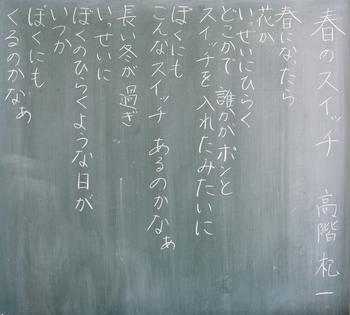 春のスイッチ 高階杞一
春になったら
花が
いっせいにひらく
どこかで 誰かがポンと
スイッチを入れたみたいに
ぼくにも
こんなスイッチ あるのかなぁ
長い冬が過ぎ
いっせいに
ぼくのひらくような日が
いつか
ぼくにも
くるのかなぁ